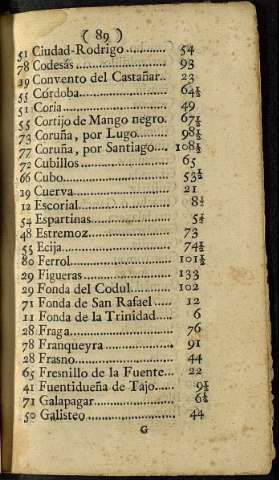 ( 89 )
51 Ciudad-Rodrigo........... 54
78 Codesás..................... 93
29 Convento del Castañar.. 23
55 Córdoba.................... 64½
51 Coria........................ 49
55 Cortijo de Mango negro. 67½
73 Coruña, por Lugo........ 98½
77 Coruña, por Santiago.... 108½
72 Cubillos..................... 65
66 Cubo......................... 53½
29 Cuerva....................... 21
12 Escorial...................... 8½
54 Espartinas.................. 5½
48 Estremoz.................... 73
55 Ecija......................... 74½
80 Ferrol........................ 101½
29 Figueras..................... 133
29 Fonda del Codul.......... 102
71 Fonda de San Rafael..... 12
11 Fonda de la Trinidad..... 6
28 Fraga......................... 76
78 Franqueyra................. 91
28 Frasno....................... 44
65 Fresnillo de la Fuente... 22
41 Fuentidueña de Tajo..... 9½
71 Galapagar.................. 6½
50 Galisteo..................... 44
G